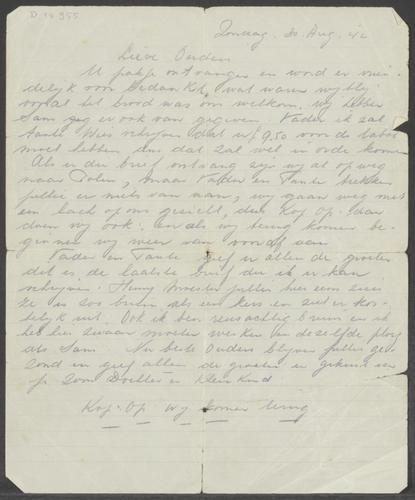 D 10955
Zondag. 30 Aug. 42
Lieve Ouders
U pakje ontvangen en word er vrien
delijk voor bedankt, wat waren wij blij
vooral het brood was ons welkom. wij hebben
Sam er ook van gegeven. Vader ik zal
tante Wies schrijven dat u f 9.50 voor de
moet hebben dus dat zal wel in orde komen
Als u den brief ontvang zijn wij al op weg
naar Polen, maar Vader en Tante trekken
jullie er niets van aan, wij gaan weg met
een lach op ons gezicht, dus Kop Op. daar
doen wij ook. en als wij terug komen be
ginnen wij weer van voor af aan
Vader en Tante geef er allen de groeten
dit is de laatste brief die ik er kan
schrijven. Hunny moesten jullie hier eens zien
ze is zoo bruin als een kers en ziet er kos
telijk uit. Ook ik ben reusachtig bruin en ik
heb hier zwaar moeten werken van dezelfde ploeg
als Sam. Nu beste Ouders blijven jullie ge
zond en geef allen de groeten en gekust van
je Zoon Dochter en Klein Kind
Kop Op wij komen terug